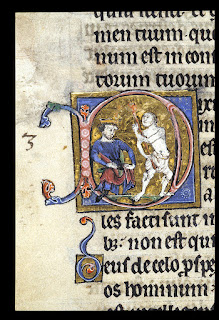 men tuum quo
num est in con
torum tuorum
3
les facti sunt in
bꝫ: non est qui
eus de celo ꝓspe
os hominum: